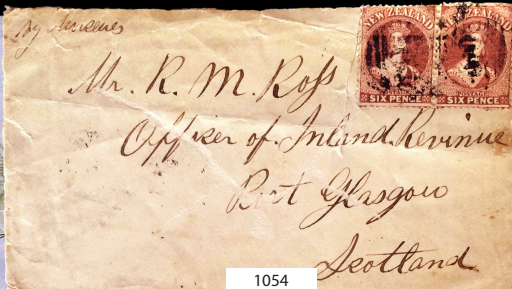 By Marseilles
NEW ZEALAND
POSTAGE
SIX PENCE
NEW ZEALAND
POSTAGE
SIX PENCE
Mr. R. M. Ross
Officer of Inland Revinue
Port Glasgow
Scotland
1054